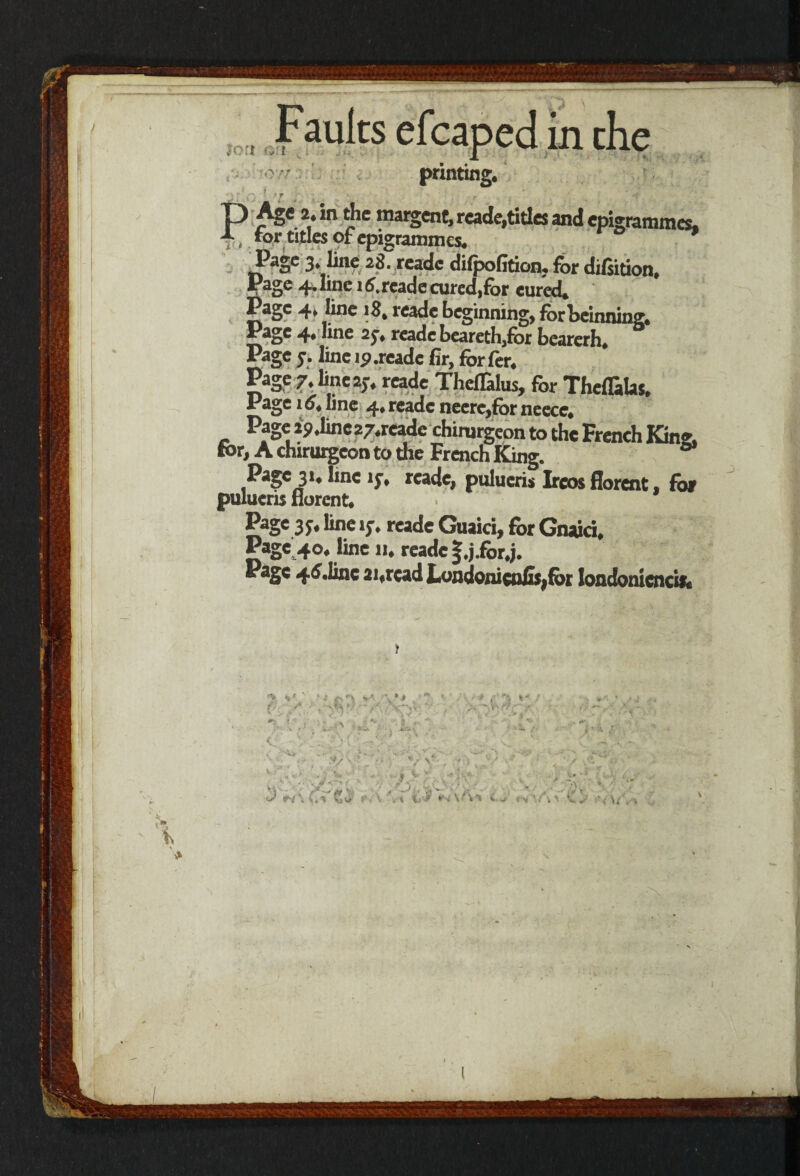 Faults eſcaped in the
printing.
PAge 2. in the margent, reade, titles and epigrammes,
for titles of epigrammes.
Page 3. line 28. reade diſpoſition, for diſsition.
Page 4. line 16. reade cured, for cured.
Page 4. line 18. reade beginning, for beinning.
Page 4. line 25. reade beareth, for bearerh.
Page 5. line 19. reade ſir, for ſer.
Page 7. line 25. reade Theſſalus, for Theſſalas.
Page 16. line 4. reade neere, for neece.
Page 29. line 27. reade chirurgeon to the French King,
for, A chirurgeon to the French King.
Page 31. line 15. reade, pulueris Ireos florent, for
pulueris florent.
Page 35. line 15. reade Guaici, for Gnaici.
Page 40. line 11. reade ℥.j. for .j.
Page 46. line 21. read Londonienſis, for londoniencis.